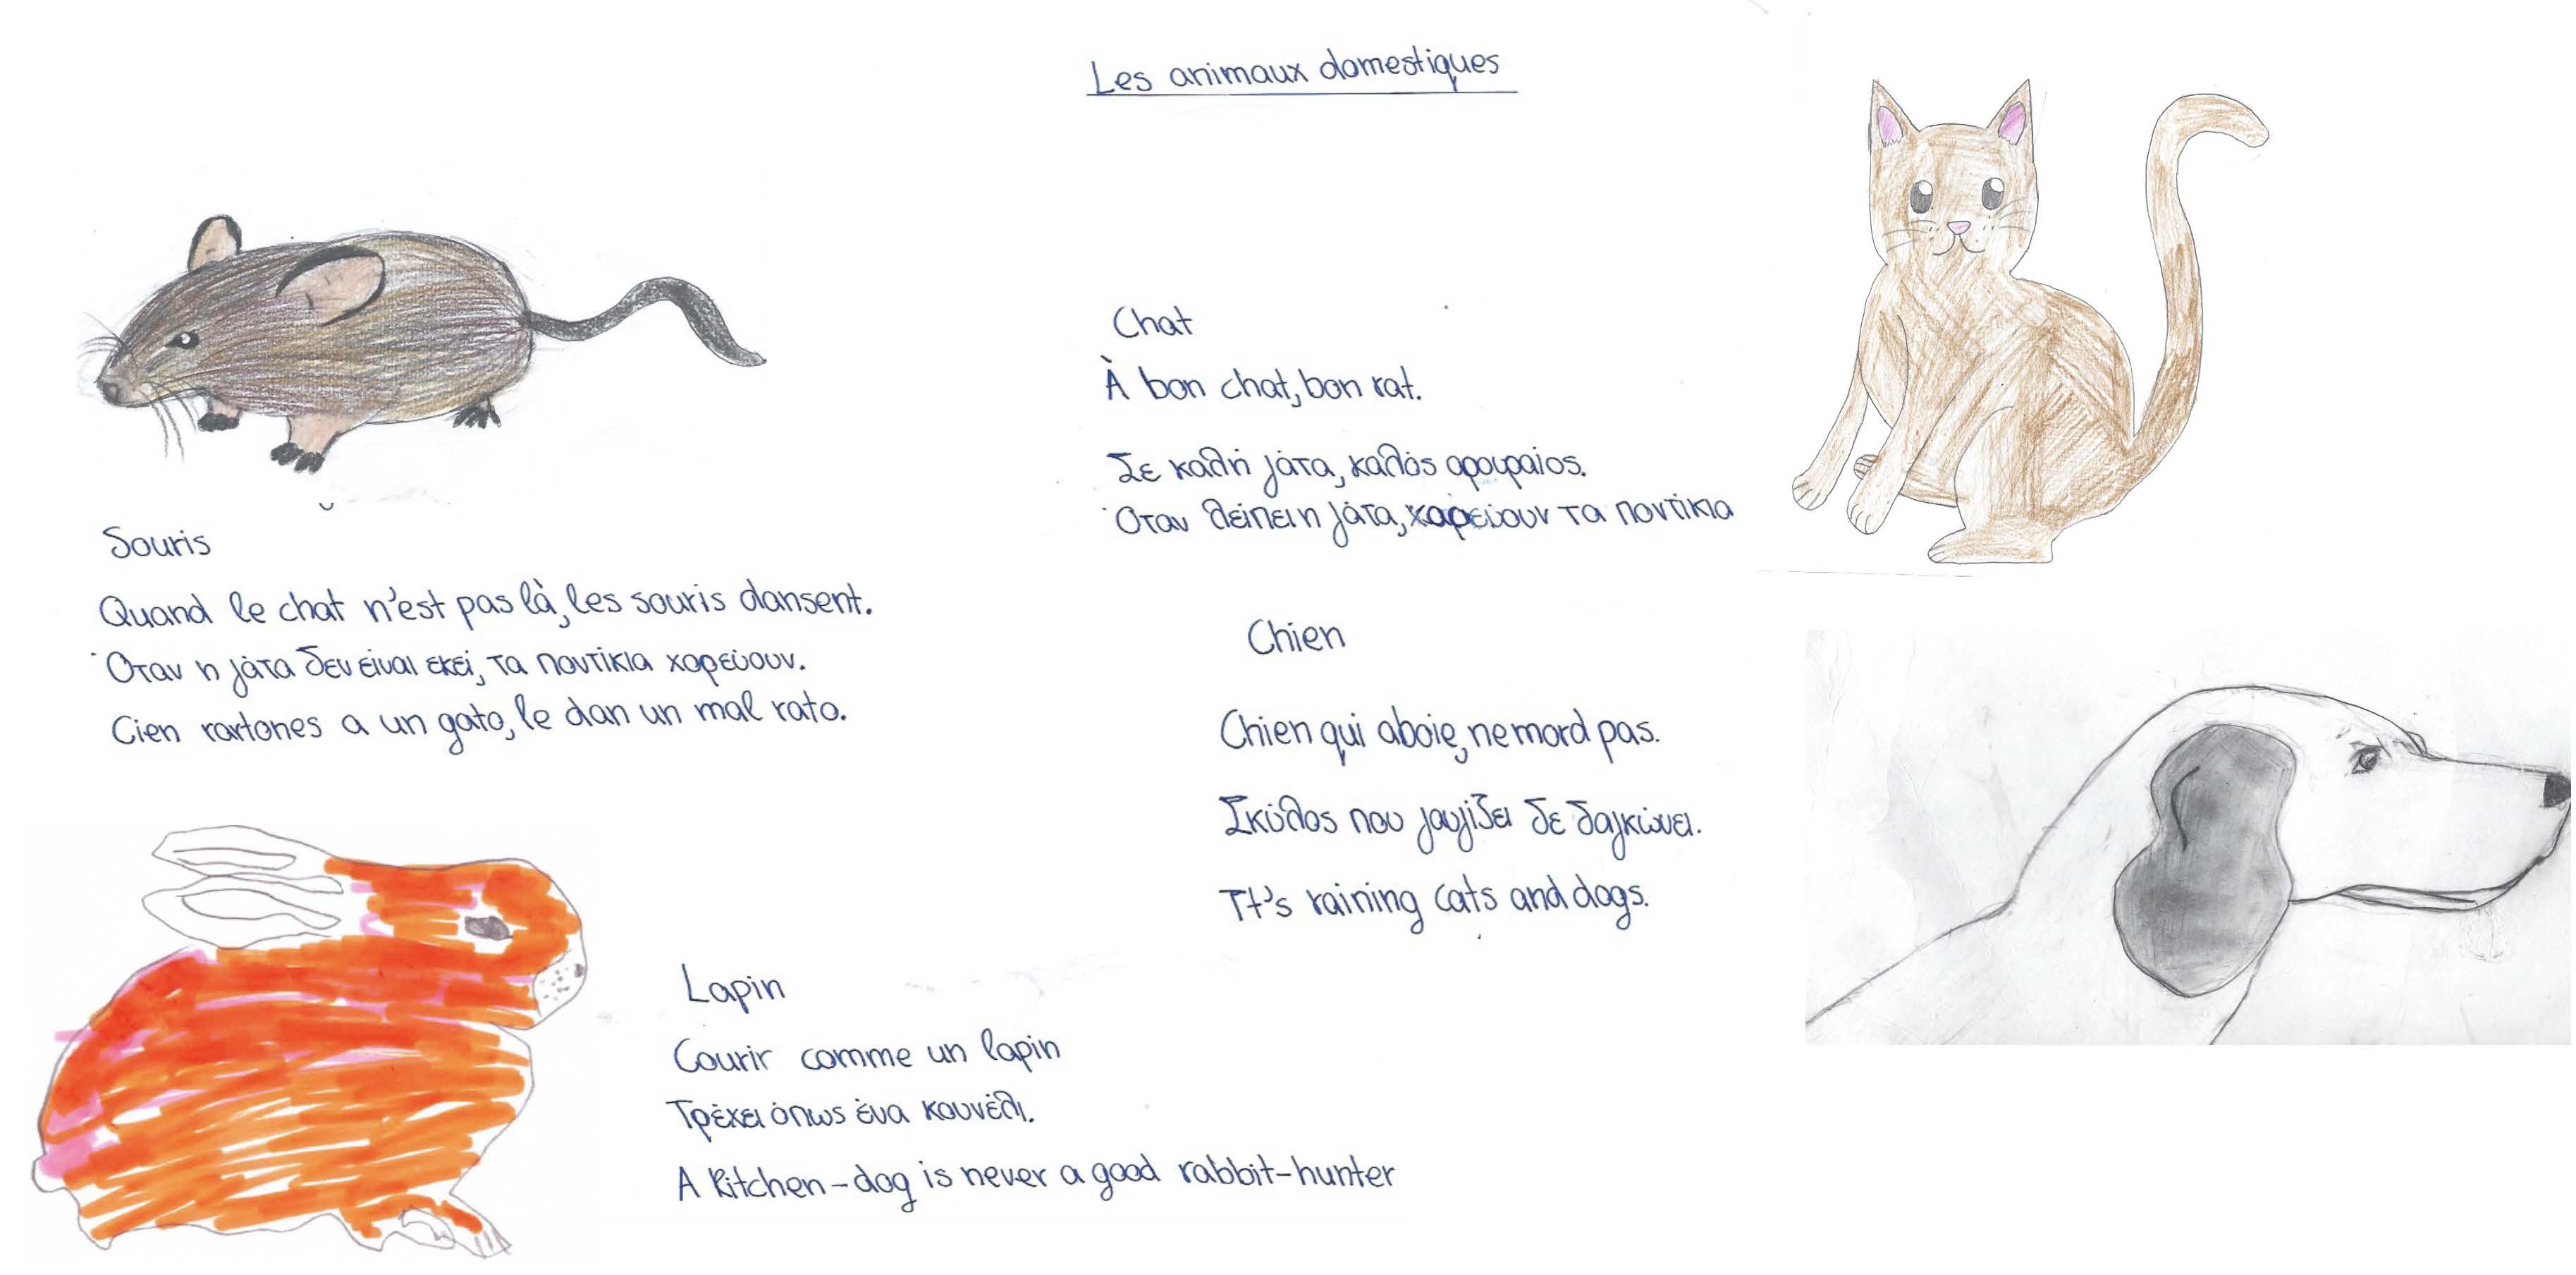 Les animaux domestiques
Souris
Quand le chat n'est pas là, les souris dansent.
Όταν η γάτα δεν είναι εκεί, τα ποντίκια χορεύουν.
Cien rartones a un gato, le dan un mal rato.
Chat
À bon chat, bon rat.
Σε καλή γάτα, καλός αρουραίος.
Όταν λείπει η γάτα, χορεύουν τα ποντίκια
Chien
Chien qui aboie, ne mord pas.
Σκύλος που γαυγίζει δε δαγκώνει.
It's raining cats and dogs.
Lapin
Courir comme un lapin
Τρέχει όπως ένα κουνέλι.
A kitchen-dog is never a good rabbit-hunter